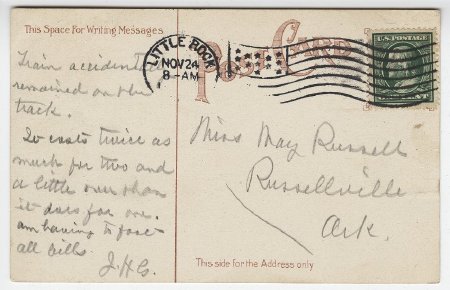 This Space for Writing Messages
Train accident
remained on the
track.
It costs twice as
much for two and
a little over than
it does for one.
am having to foot
all bills.
J.H.G.
POST CARD
LITTLE ROCK
NOV 24
8-AM
U.S. POSTAGE
Miss May Russell
Russellville
Ark.
This side for the Address only